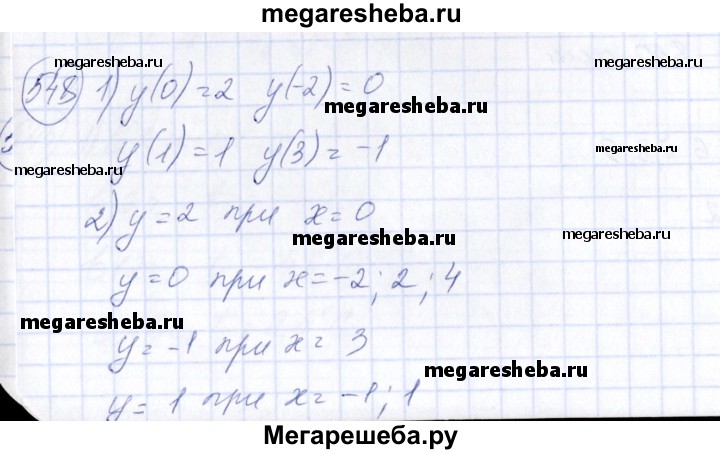 megaresheba.ru
548 1) y(0)=2 y(-2)=0
megaresheba.ru
megaresheba.ru
megaresheba.ru
y(1)=1 y(3)=-1
megaresheba.ru
2) y=2 при x=0
megaresheba.ru
megaresheba.ru
y=0 при x=-2; 2; 4
megaresheba.ru
y=-1 при x=3
megaresheba.ru
y=1 при x=-1; 1
Мегарешеба.ру